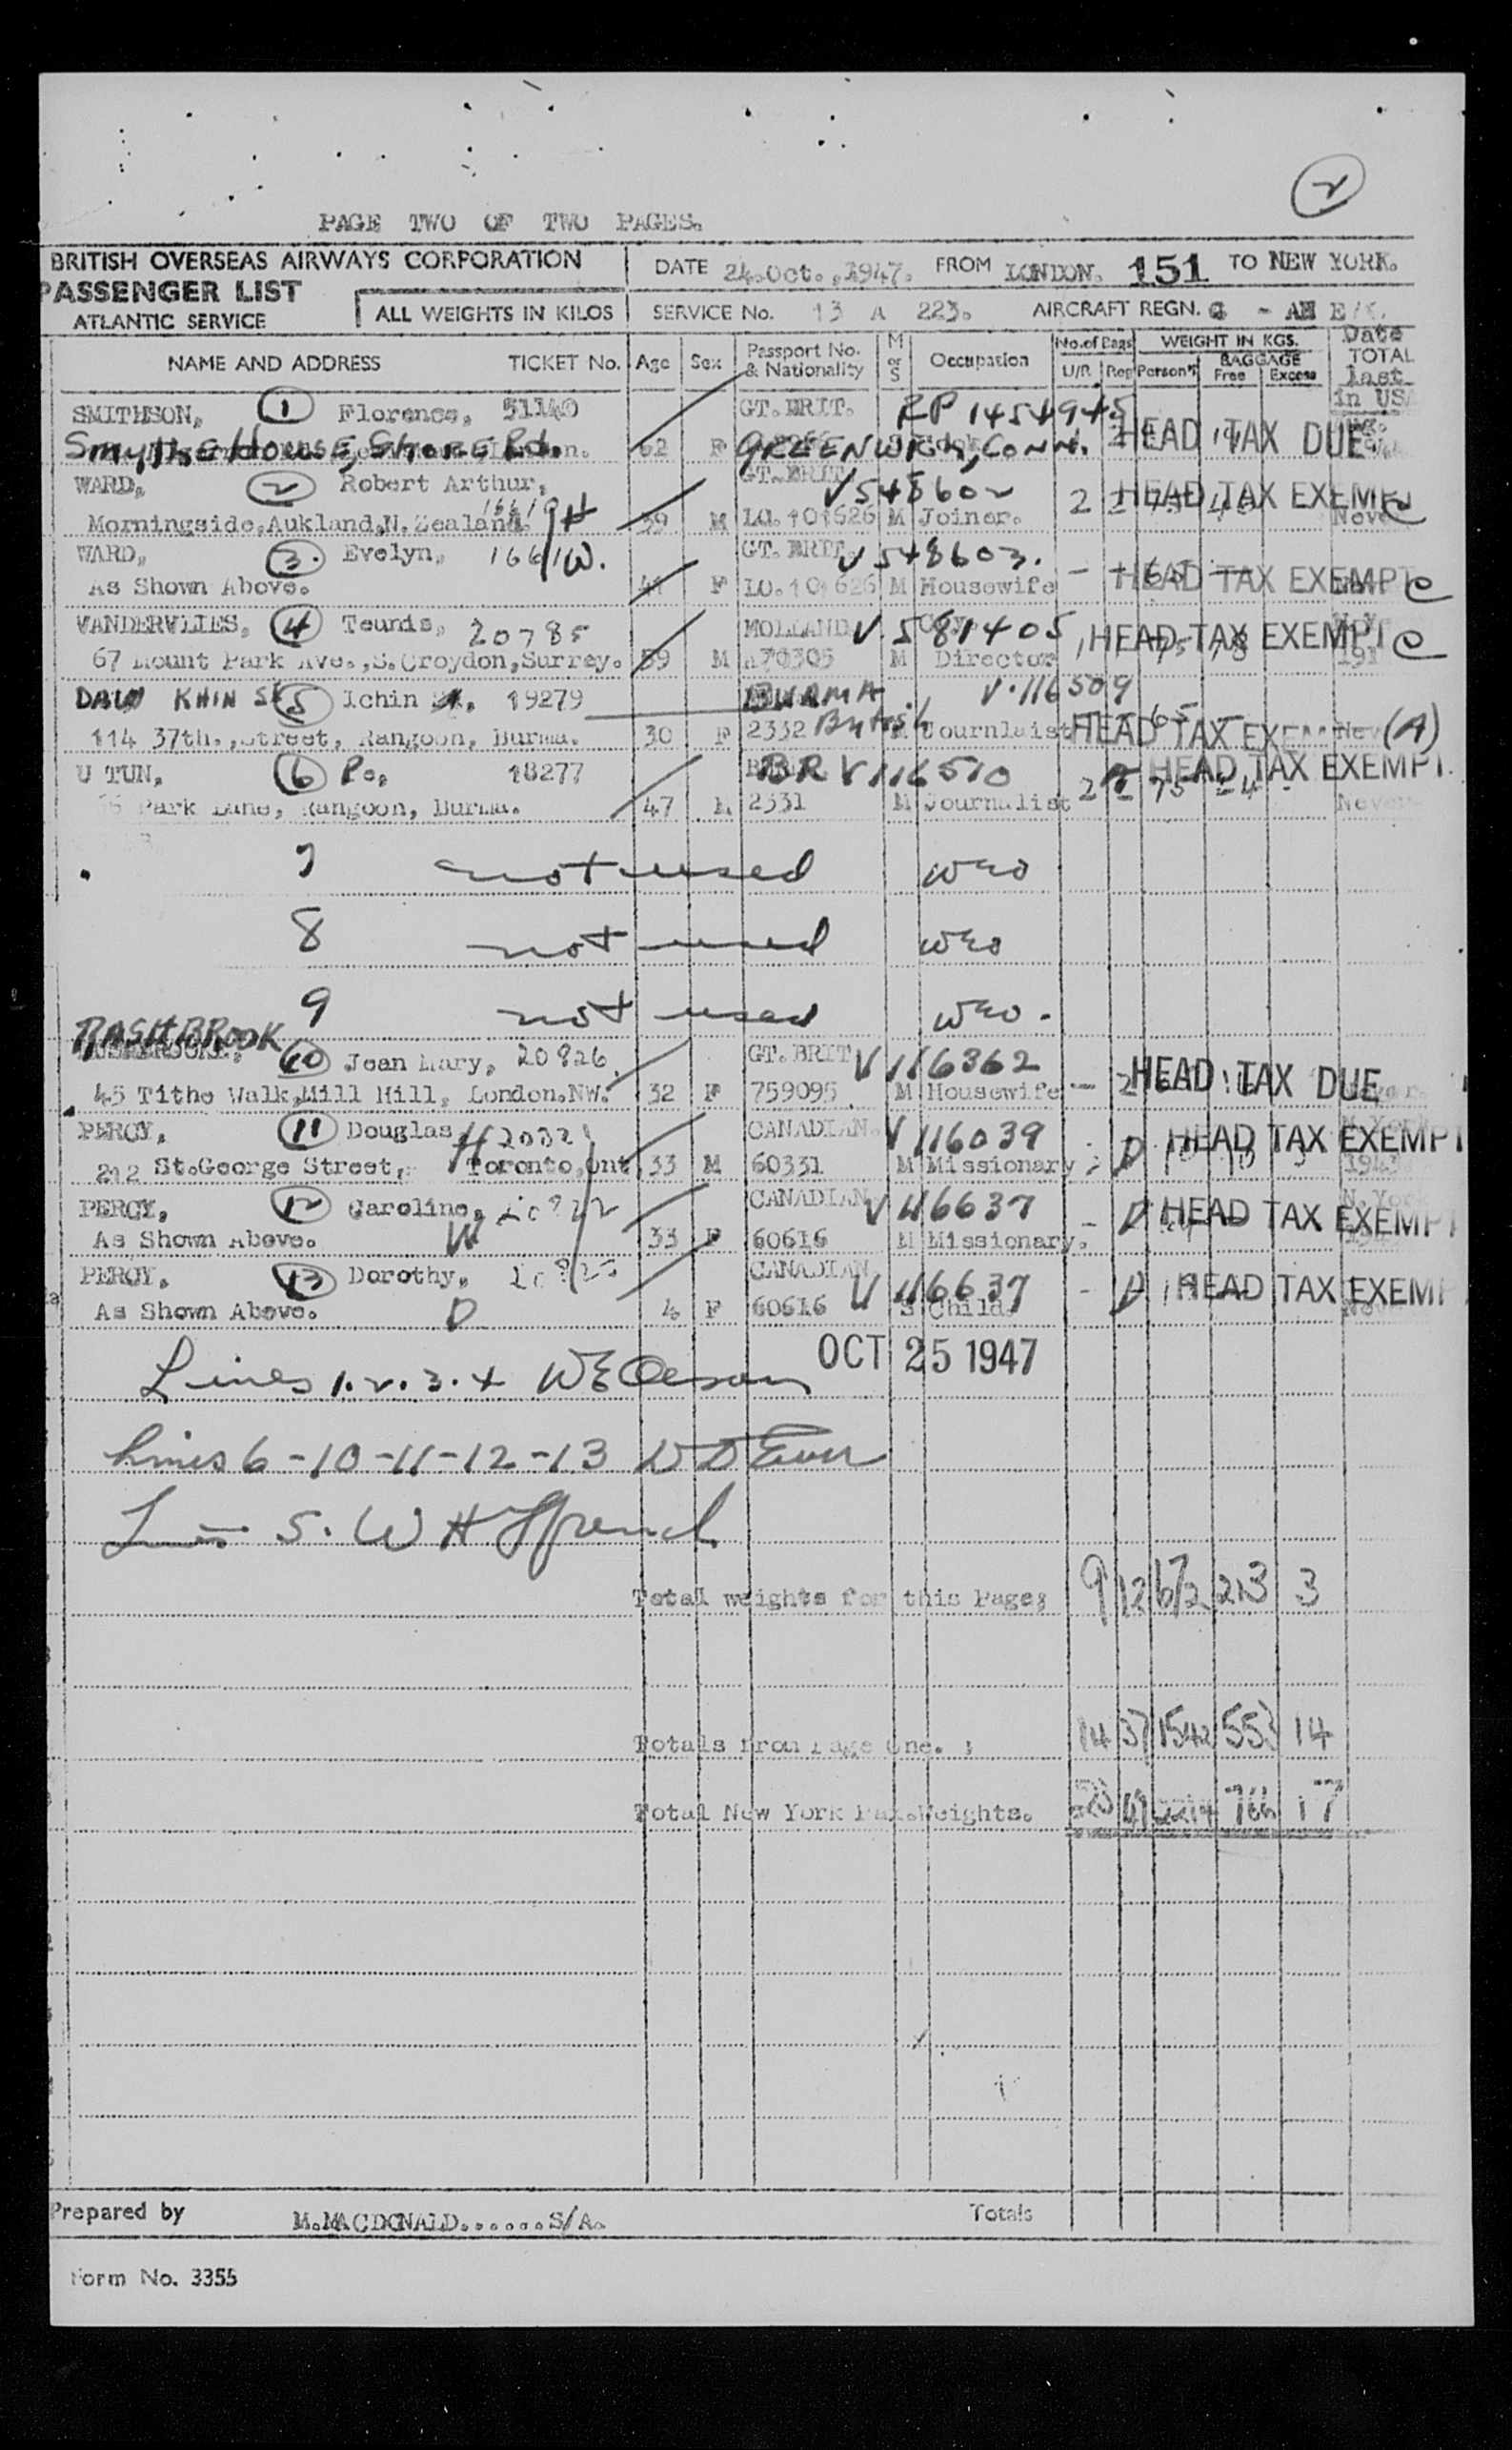 2
PAGE TWO OF TWO PAGES.
BRITISH OVERSEAS AIRWAYS CORPORATION
PASSENGER LIST
ATLANTIC SERVICE
ALL WEIGHTS IN KILOS
DATE 24.Oct.,1947. FROM LONDON. 151 TO NEW YORK.
SERVICE No. 13 A 223. AIRCRAFT REGN. G - AH
NAME AND ADDRESS TICKET No. Age Sex Passport No. & Nationality M or S Occupation No.of Bags U/R Reg WEIGHT IN KGS. Person'l BAGGAGE Free Excess Date TOTAL last in USA
SMITHSON, 1 Florence, 51140 GT.BRIT. RP 1454945
Smythe House, Shore Rd. 62 F GREENWICH, CONN. HEAD TAX DUE
WARD, 2 Robert Arthur, GT.BRIT V548602
Morningside,Aukland,N.Zealand. 16619 H 39 M LO.101626 M Joiner. 2 HEAD TAX EXEMPT C
WARD, 3. Evelyn, 1661 W. GT.BRIT. V548603.
As Shown Above. 41 F LO.101626 M Housewife - HEAD TAX EXEMPT C
VANDERVLIES, 4 Teunis, 20785 HOLLAND V581405
67 Mount Park Ave.,S.Croydon,Surrey. 59 M M Director 1 HEAD TAX EXEMPT C
DAW KHIN 5 Ichin 19279 BURMA V.116509
114 37th.,Street, Rangoon, Burma. 30 F 2332 British Journlaist HEAD TAX EXEMPT (A)
U TUN, 6 Po, 18277 BR V116510
Park Lane, Rangoon, Burma. 47 M 2331 M Journalist 2 75 24 HEAD TAX EXEMPT. Never
7 not used WEO
8 not used WEO
9 not used WEO.
RASHBROOK
10 Jean Mary, 20826 GT.BRIT V116362
45 Tithe Walk,Mill Hill, London.NW. 32 F 759095 M Housewife - 2 HEAD TAX DUE
PERCY, 11 Douglas H CANADIAN. V116039
212 St.George Street, Toronto,Ont 33 M 60331 M Missionary HEAD TAX EXEMPT
PERCY, 12 Caroline, CANADIAN V116637
As Shown Above. W 33 F 60616 M Missionary. - HEAD TAX EXEMPT
PERCY, 13 Dorothy, CANADIAN V116637
As Shown Above. D 4 F 60616 S Child - HEAD TAX EXEMPT
OCT 25 1947
Lines 1.2.3.4 WEOleson
Lines 6-10-11-12-13
5. W H
Total weights for this Page; 9 12 672 213 3
Totals from Page One. ; 14 37 1542 553 14
Total New York Pax.Weights. 17
Prepared by M.MACDONALD......S/A. Totals
Form No. 3355